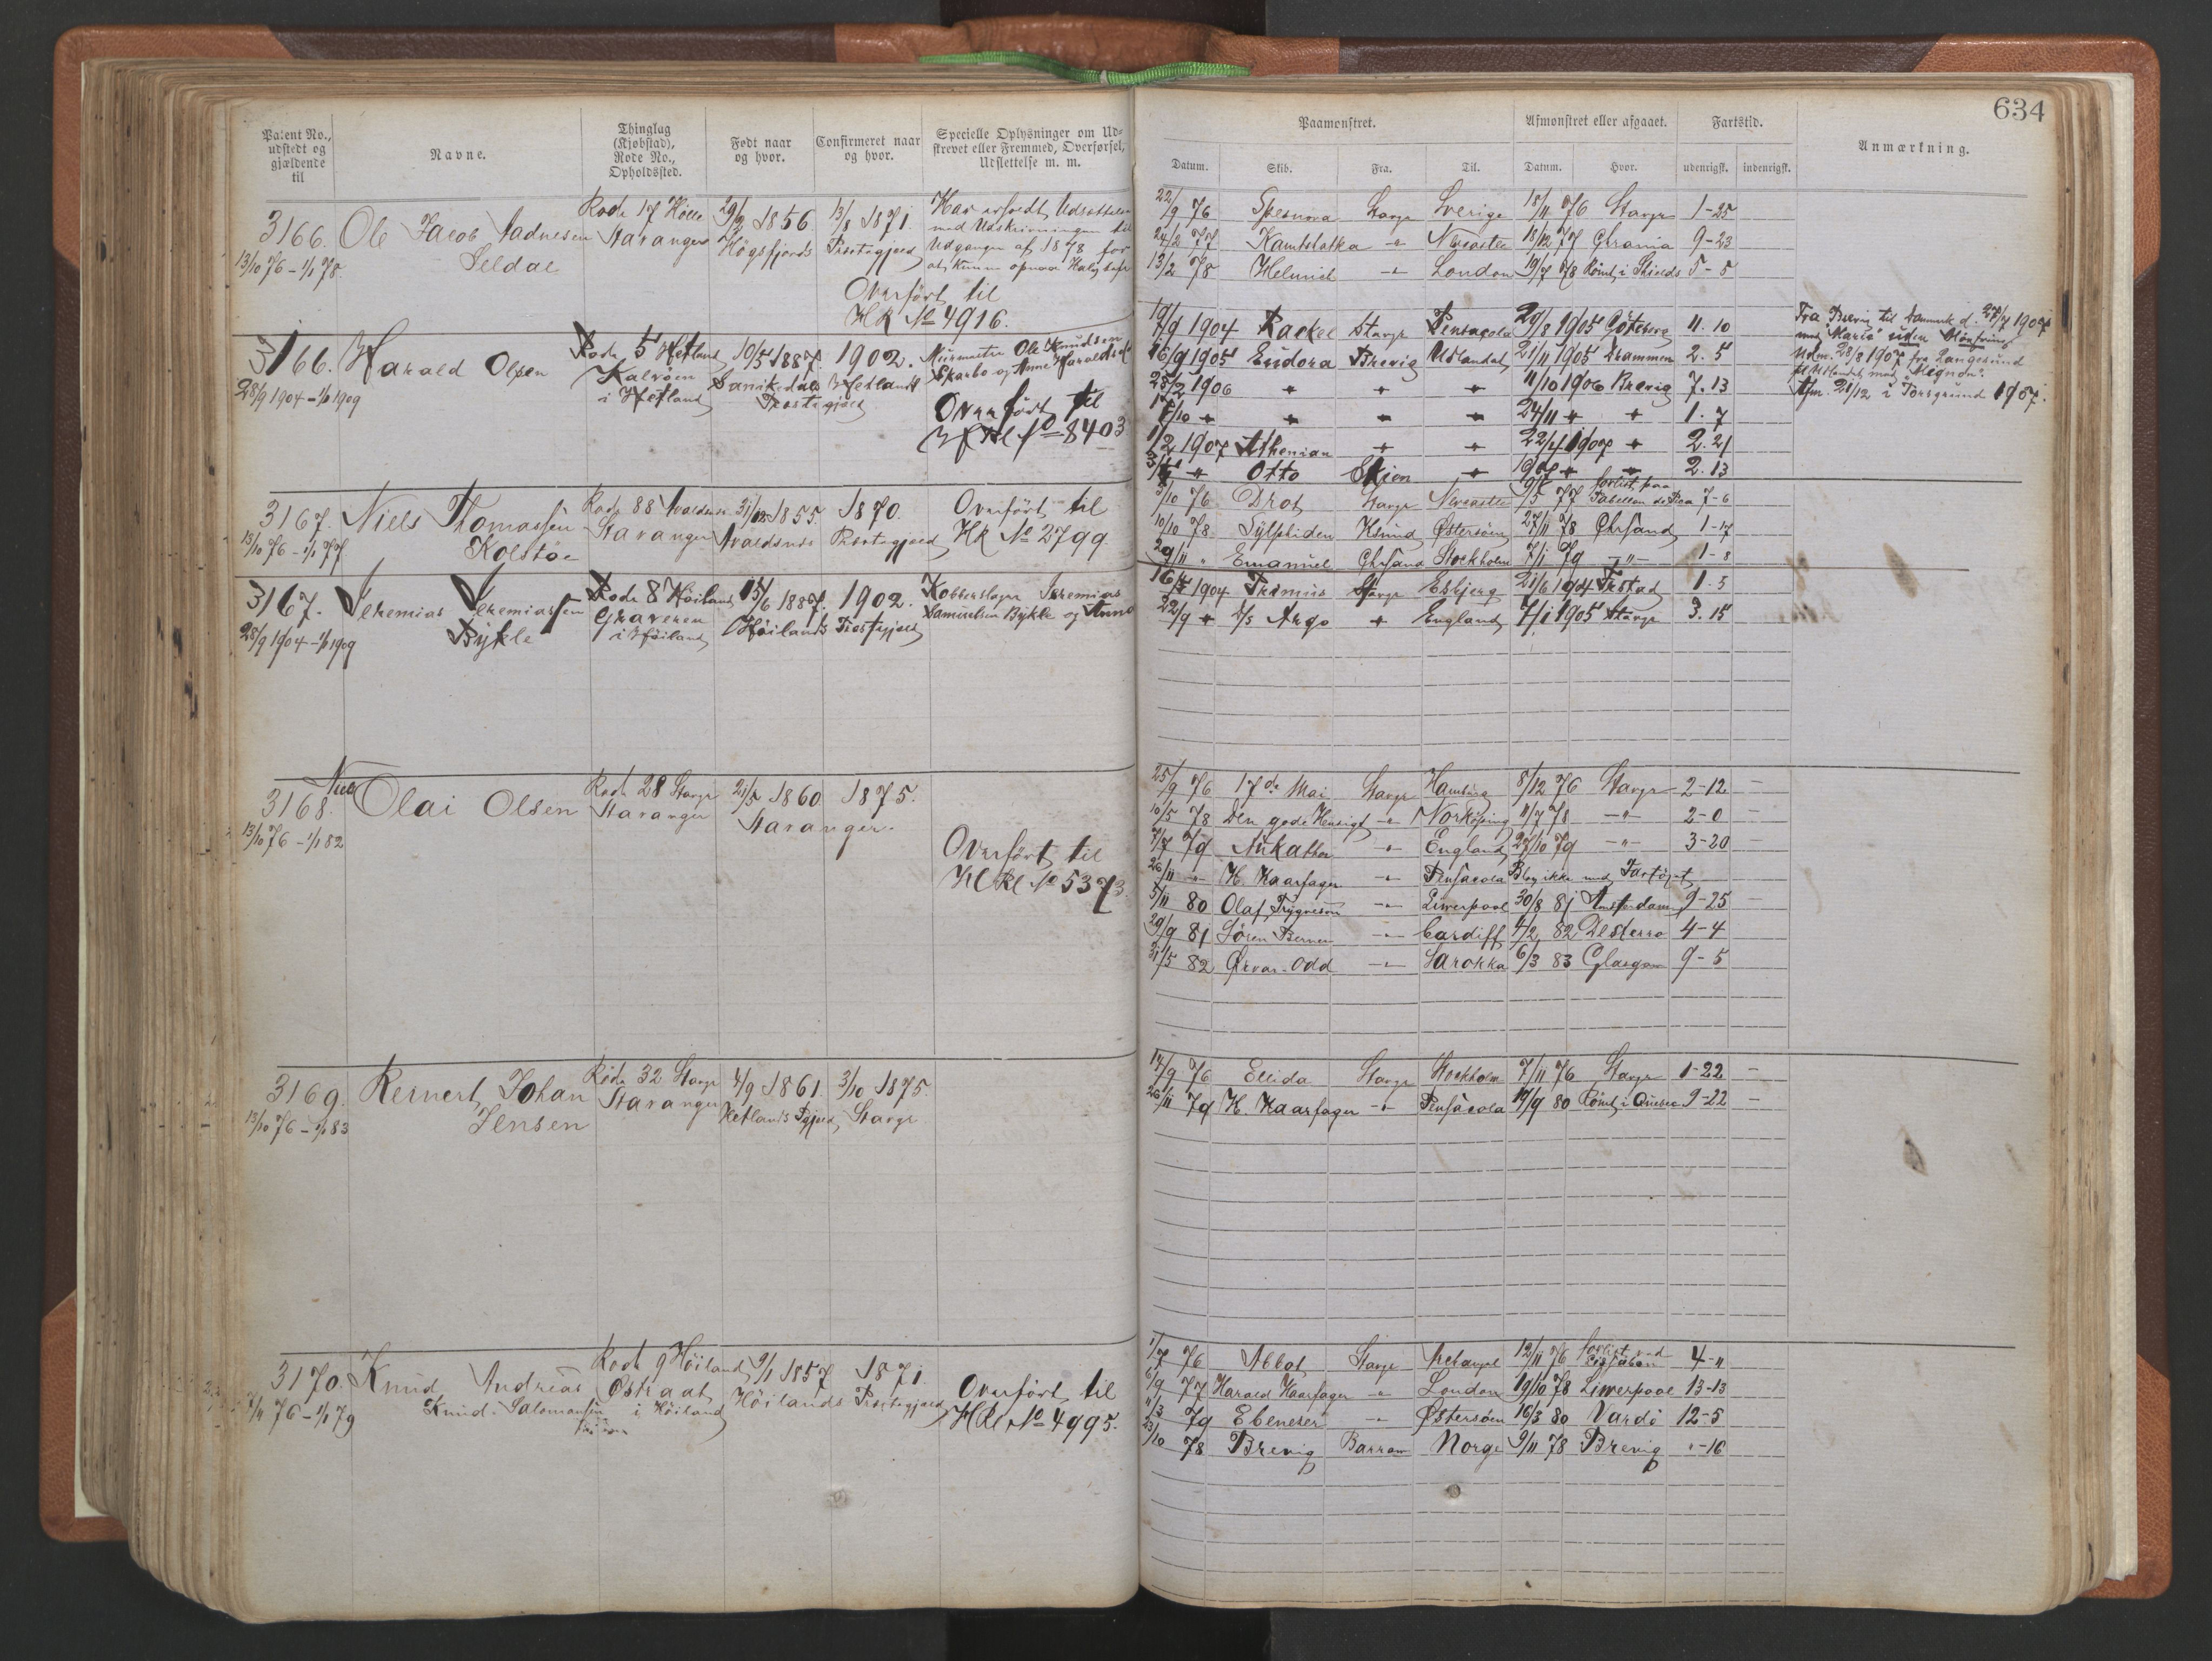 634
Patent No., udstedt og gjældende til
Navne.
Thinglag (Kjøbstad), Rode No., Opholdssted.
Født naar og hvor.
Confirmeret naar og hvor.
Specielle Oplysninger om Udskrevet eller Fremmed, Overførsel, Udslettelse m. m.
Paamønstret.
Datum. Skib. Fra. Til.
Afmønstret eller afgaaet.
Datum. Hvor.
Fartstid.
udenrigsk. indenrigsk.
Anmærkning.
3166. Ole Jacob Aadnesen
Seldal
13/10 76 - 1/1 78.
Rode 17 Hölle
Stavanger
29/2 1856
Högsfjords
13/8 1871.
Præstegjæld
Udgangen af 1878 for
Overført til
HR No 4916.
22/9 76 Stavgr Sverige 15/11 76 Stavgr 1-25
24/2 77 Kamtschatka -"- Newcastle 18/12 77 Chrania 9-23
13/2 78 -"- London 19/7 78 Römt i Shields 5-5
3166. Harald Olsen
28/9 1904 - 1/1 1909
Rode 5 Hetland
Kalvöen
i Hetland
10/5 1887. 1902.
Hetlands
Præstegjæld
Murmester Ole Knudsen
Skarbo og Anne Haraldsd
Overfört til
No 8403
1904 Rackel Stavgr Pensacola 29/8 1905 Göteborg 11.10
16/9 1905 Eudora Brevig Udlandet 21/11 1905 Drammen 2.5
28/2 1906 " " " 11/10 1906 Brevig 7.13
" " " " 24/11 " " 1.7
1/2 1907 Athenian " " 22/4 1907 " 2.21
" Otto Skien " " " 2.13
Fra Brevig til Danmark d. 27/7 1907
med "Maria" uden Mönstring
Udm. 28/8 1907 fra Langesund
til Udlandet med "Mignon".
Afm. 21/12 i Porsgrund 1907.
3167. Niels Thomassen
Kolstöe
13/10 76 - 1/1 77
Rode 88 Avaldsnes
Stavanger
31/12 1855. 1870
Avaldsnes Præstegjæld
Overfört til
HR No 2799
3/10 76 Drot Stavgr Newcastle 9/5 77 forlist paa 7-6
10/10 78 Sylphiden Ksund Østersöen 27/11 78 ChrSand 1-17
29/11 " Emanuel ChrSand Stockholm 7/1 79 -"- 1-8
3167. Jeremias Jeremiassen
Bykle
28/9 1904 - 1/1 1909
Rode 8 Höiland
Graveren
i Höiland
15/6 1887. 1902.
Höilands Præstegjæld
Kobberslager Jeremias
Samuelsen Bykle og Anna
1904 Primus Stavgr Esbjerg 21/6 1904 1.5
22/9 " D/S Argo " England 7/1 1905 Stavgr 3.15
3168. Niels Olai Olsen
13/10 76 - 1/1 82
Rode 28 Stavgr
Stavanger
21/5 1860 1875.
Stavanger.
Overfört til
HR No 5373
25/9 76 17de Mai Stavgr Hamburg 8/12 76 Stavgr 2-12
10/5 78 Den gode Hensigt -"- Norköping 11/7 78 -"- 2-0
7/7 79 -"- England 27/10 79 -"- 3-20
26/11 -"- H. Haarfager -"- Pensacola Blev ikke med Fartöiet
5/11 80 Olaf Trygveson -"- Liverpool 30/8 81 Amsterdam 9-25
29/9 81 Sören Berner -"- Cardiff 4/2 82 Desterro 4-4
31/5 82 Ørvar-Odd -"- Sarokka 6/3 83 Glasgow 9-5
3169. Reinert Johan
Jensen
13/10 76 - 1/1 83
Rode 32 Stavgr
Stavanger
4/9 1861. 3/10 1875.
Hetlands Pgjæld, Stavgr
14/9 76 Ellida Stavgr Stockholm 7/11 76 Stavgr 1-22
26/11 79 H. Haarfager -"- Pensacola 17/9 80 Römt i Quebec 9-22
3170. Knud Andreas
Knud Salomonsen
7/11 76 - 1/1 79
Rode 9 Höiland
Østraat
i Höiland
9/1 1857 1871.
Höilands Præstegjæld
Overfört til
HR No 4995.
1/7 76 Abbot Stavgr Archangel 12/11 76 forlist ved 4-11
6/9 77 Harald Haarfager -"- London 19/10 78 Liverpool 13-13
11/3 79 Ebeneser -"- Østersöen 16/3 80 Vardö 12-5
23/10 78 Brevig Barrow Norge 9/11 78 Brevig "-16